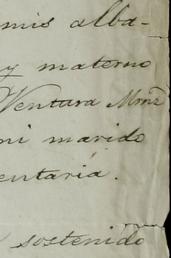 mis alba-
y materno
Ventura Mrnz
mi marido
entaria.
sostenido